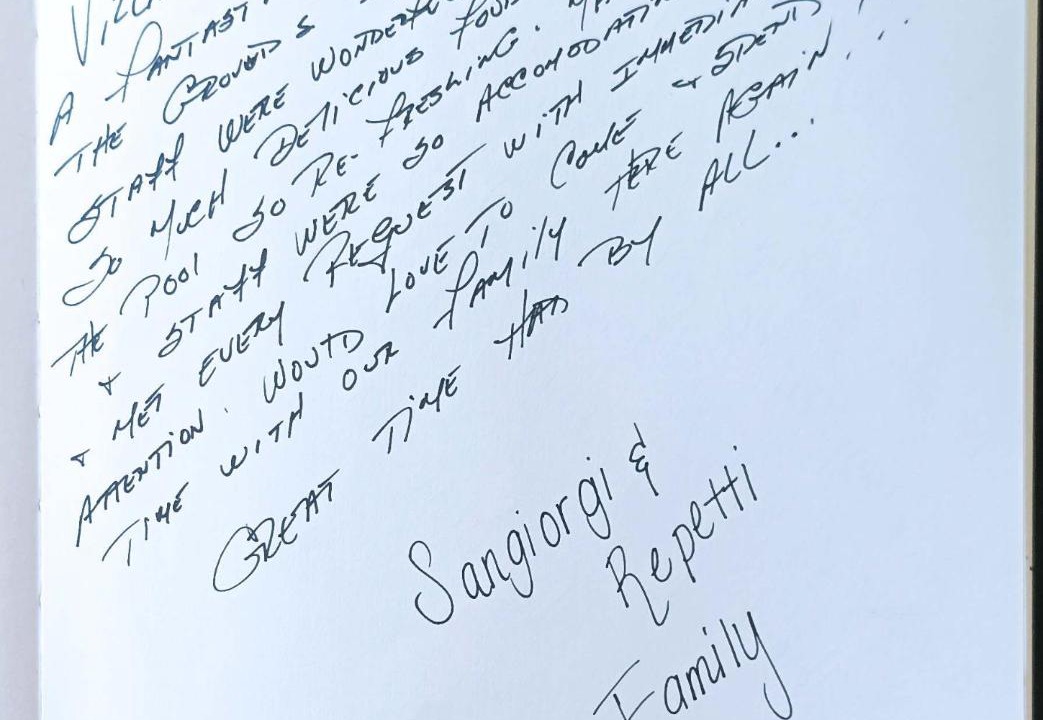 A FANTAST
THE GROUNDS
STAFF WERE WONDERFU
SO MUCH DELICIOUS FOOD
THE POOL SO RE-FRESHING.
& STAFF WERE SO ACCOMODATIN
& MET EVERY REQUEST WITH IMMEDIA
ATTENTION. WOULD LOVE TO COME & SPEND
TIME WITH OUR FAMILY HERE AGAIN...
GREAT TIME HAD BY ALL...
Sangiorgi &
Repetti
Family